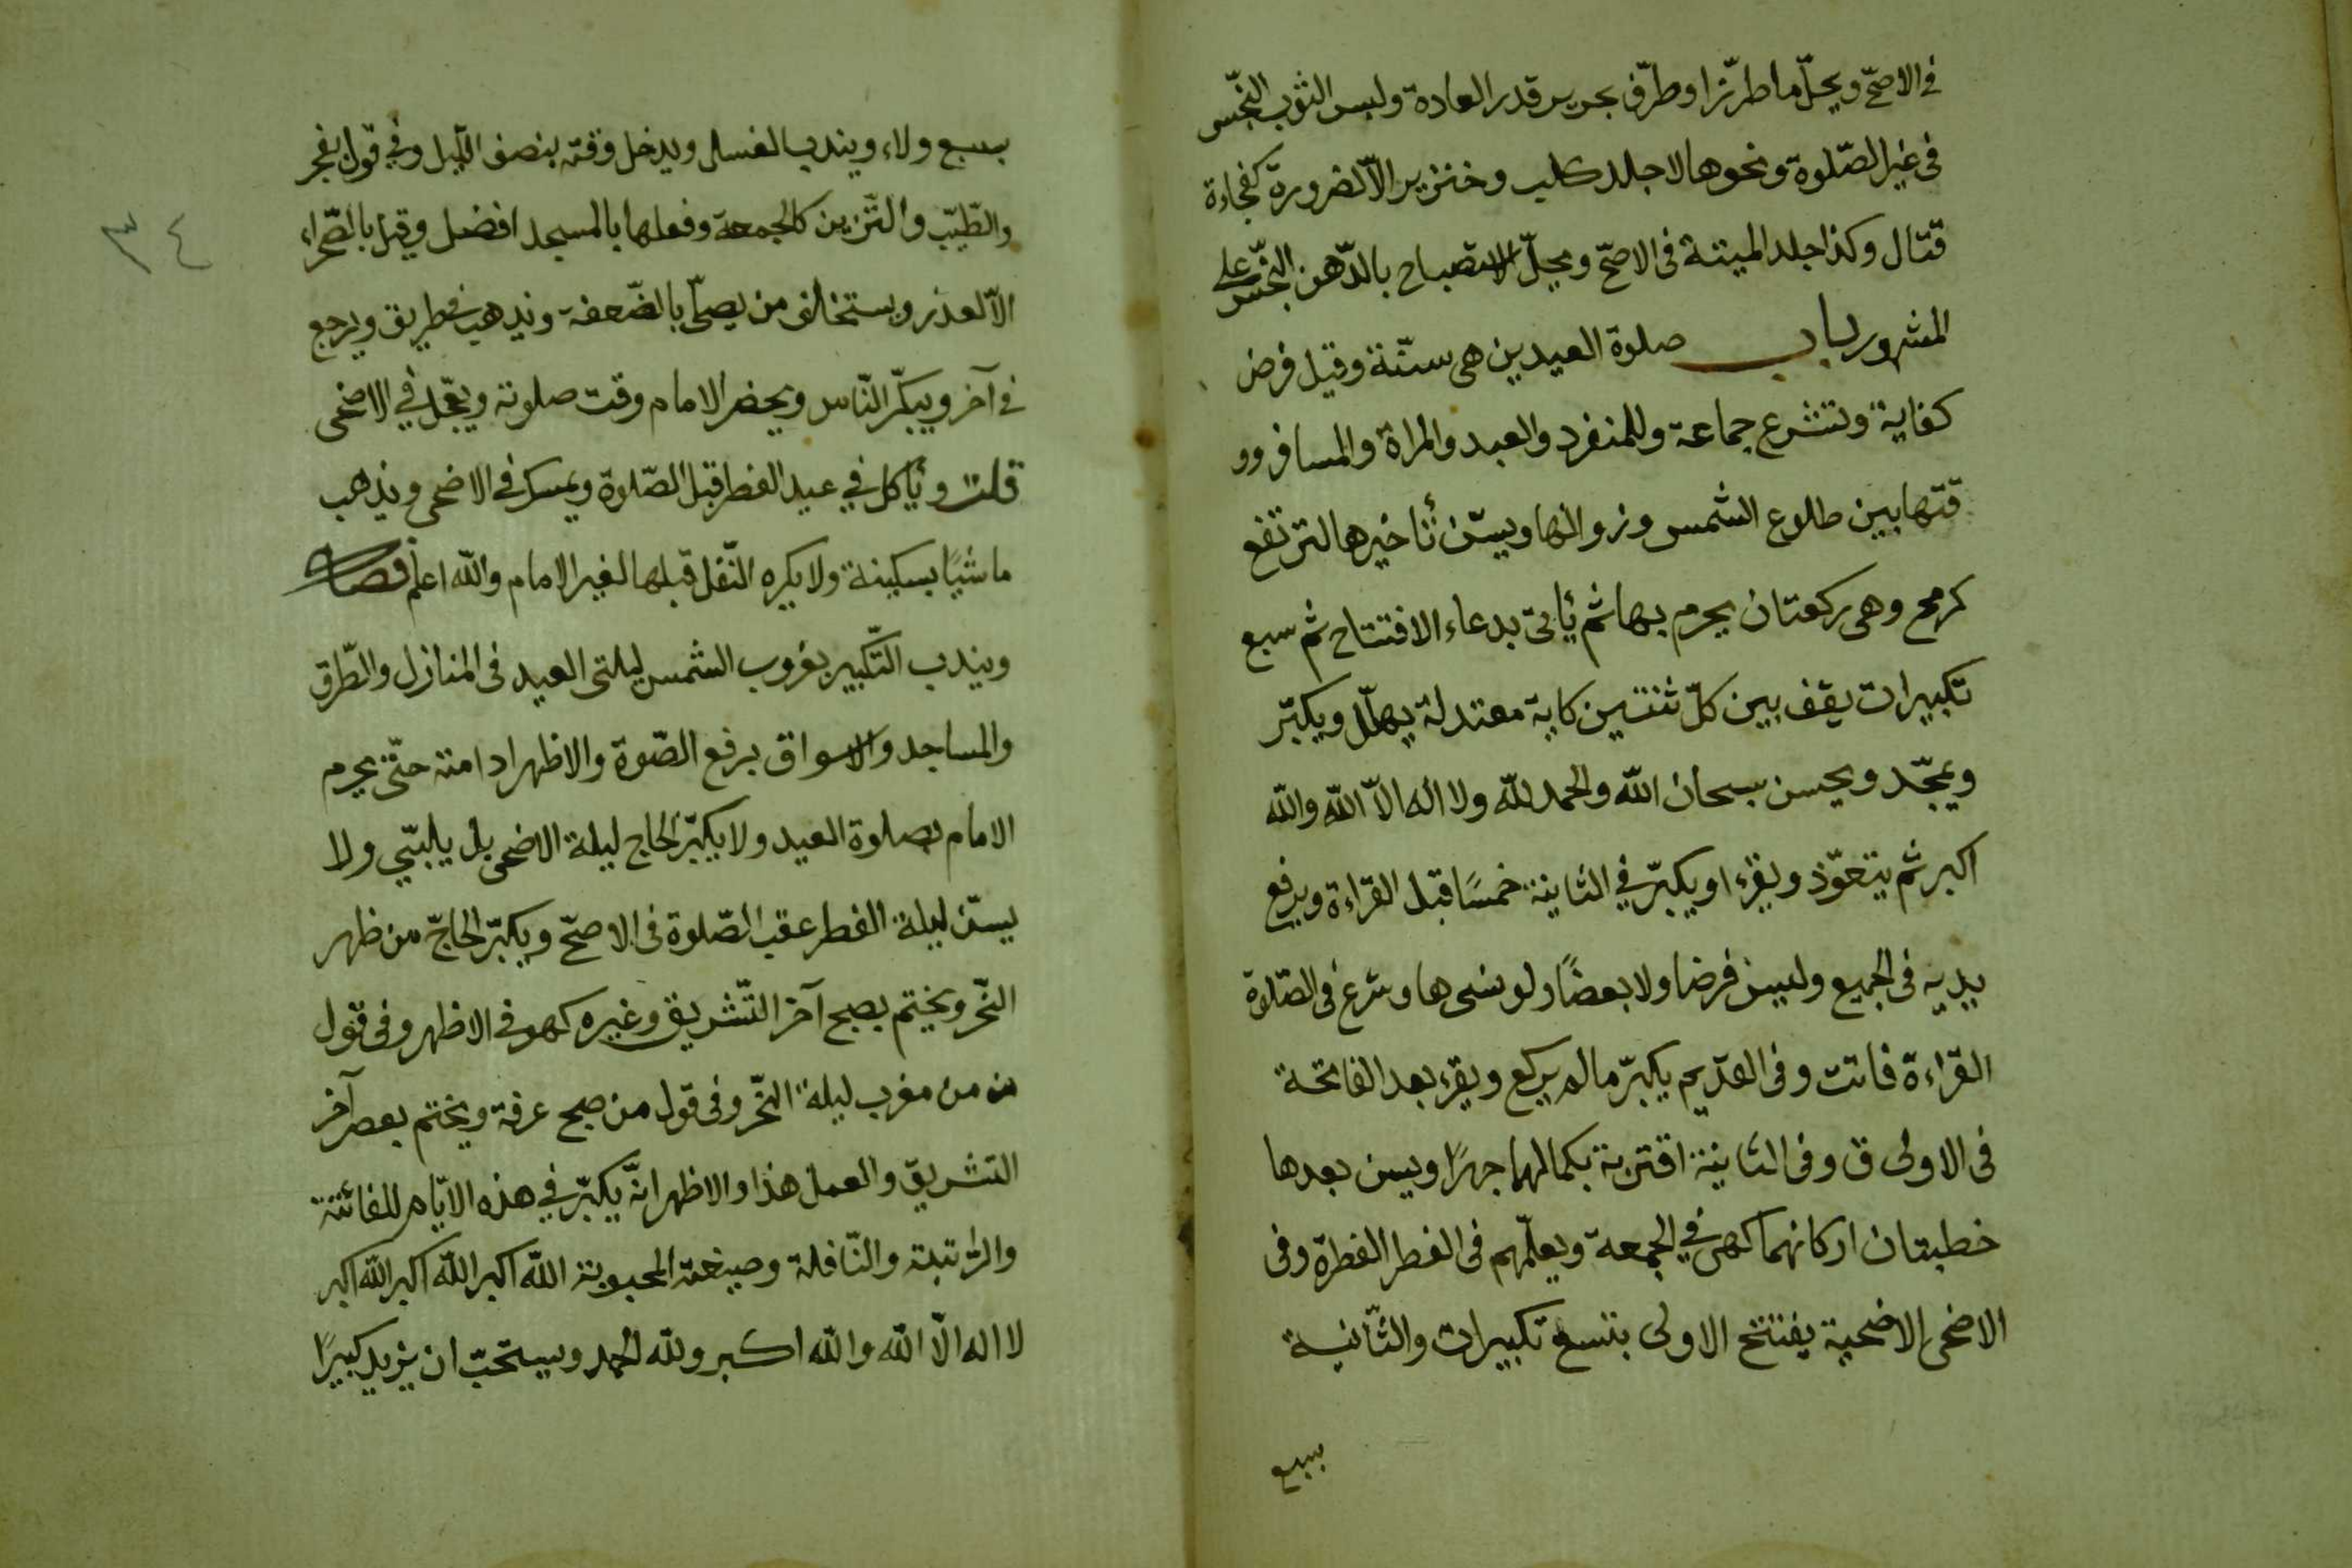 في الاصحّ ويحلّ ما طرّزا وطرّف بحرير قدر العادة ولبس الثوب النّجس
فى غير الصّلوة ونحوها لا جلد كلب وخنزير الاّ لضرورة كفجاءة
قتال وكذا جلد الميتة فى الاصحّ ويحلّ الاستصباح بالدّهن النّجس على
المشهور باب صلوة العيدين هى سنّة وقيل فرض
كفاية وتشرع جماعة وللمنفرد والعبد والمراة والمسافر وو
قتها بين طلوع الشمس وزوالها ويسنّ تأخيرها لترتفع
كرمح وهى ركعتان يحرم بها ثم يأتى بدعاء الافتتاح ثم سبع
تكبيرات يقف بين كلّ ثنتين كاية معتدلة يهلّل ويكبّر
ويمجّد ويحسن سبحان الله والحمد لله ولا اله الاّ الله والله
اكبر ثم يتعوّذ ويقرء او يكبّر في الثانية خمسًا قبل القراءة ويرفع
يديه فى الجميع وليسن فرضا ولا بعضًا ولو نسى ها وشرع فى الصّلوة
القراءة فاتت وفى القديم يكبّر ما لم يركع ويقرء بعد الفاتحة
فى الاولى ق وفى الثانية اقتربة بكمالهما جهرًا ويسن بعدها
خطبتان اركانهما كهى في الجمعة ويعلّمهم فى الفطر الفطرة وفى
الاضحى الاضحية يفتتح الاولى بتسع تكبيرات والثّانية
بسبع
٣٤
بسبع ولاء ويندب الغسل ويدخل وقته بنصف اللّيل وفي قول بفجر
والطّيّب والتّزين كالجمعة وفعلها بالمسجد افضل وقيل بالصّحراء
الاّ لعذر ويستخلف من يصلّى بالضّعفة ويذهب في طريق ويرجع
في آخر ويبكّر النّاس ويحضر الامام وقت صلوته ويعجّل في الاضحى
قلت ويأكل في عيد الفطر قبل الصّلوة ويمسك في الاضحى ويذهب
ماشيًا بسكينة ولا يكره النّفل قبلها لغير الامام والله اعلم فصل
ويندب التّكبير بغروب الشمس ليلتى العيد فى المنازل والطّرق
والمساجد والاسواق برفع الصّوة والاظهر ادامته حتّى يحرم
الامام بصلوة العيد ولا يكبّر الحاج ليلة الاضحى بل يلبّي ولا
يسنّ ليلة الفطر عقب الصّلوة فى الاصحّ ويكبّر الحاجّ من ظهر
النّحر ويختم بصبح آخر التّشريق وغيره كهو في الاظهر وفى قول
من من مغرب ليلة النّحر وفى قول من صبح عرفة ويختم بعصر آخر
التشريق والعمل هذا والاظهر انّه يكبّر في هذه الايّام للفائتة
والرّاتبة والنّافلة وصيغته المحبوبة الله اكبر الله اكبر الله اكبر
لا اله الّا الله والله اكبر ولله الحمد ويستحبّ ان يزيد كبيرًا